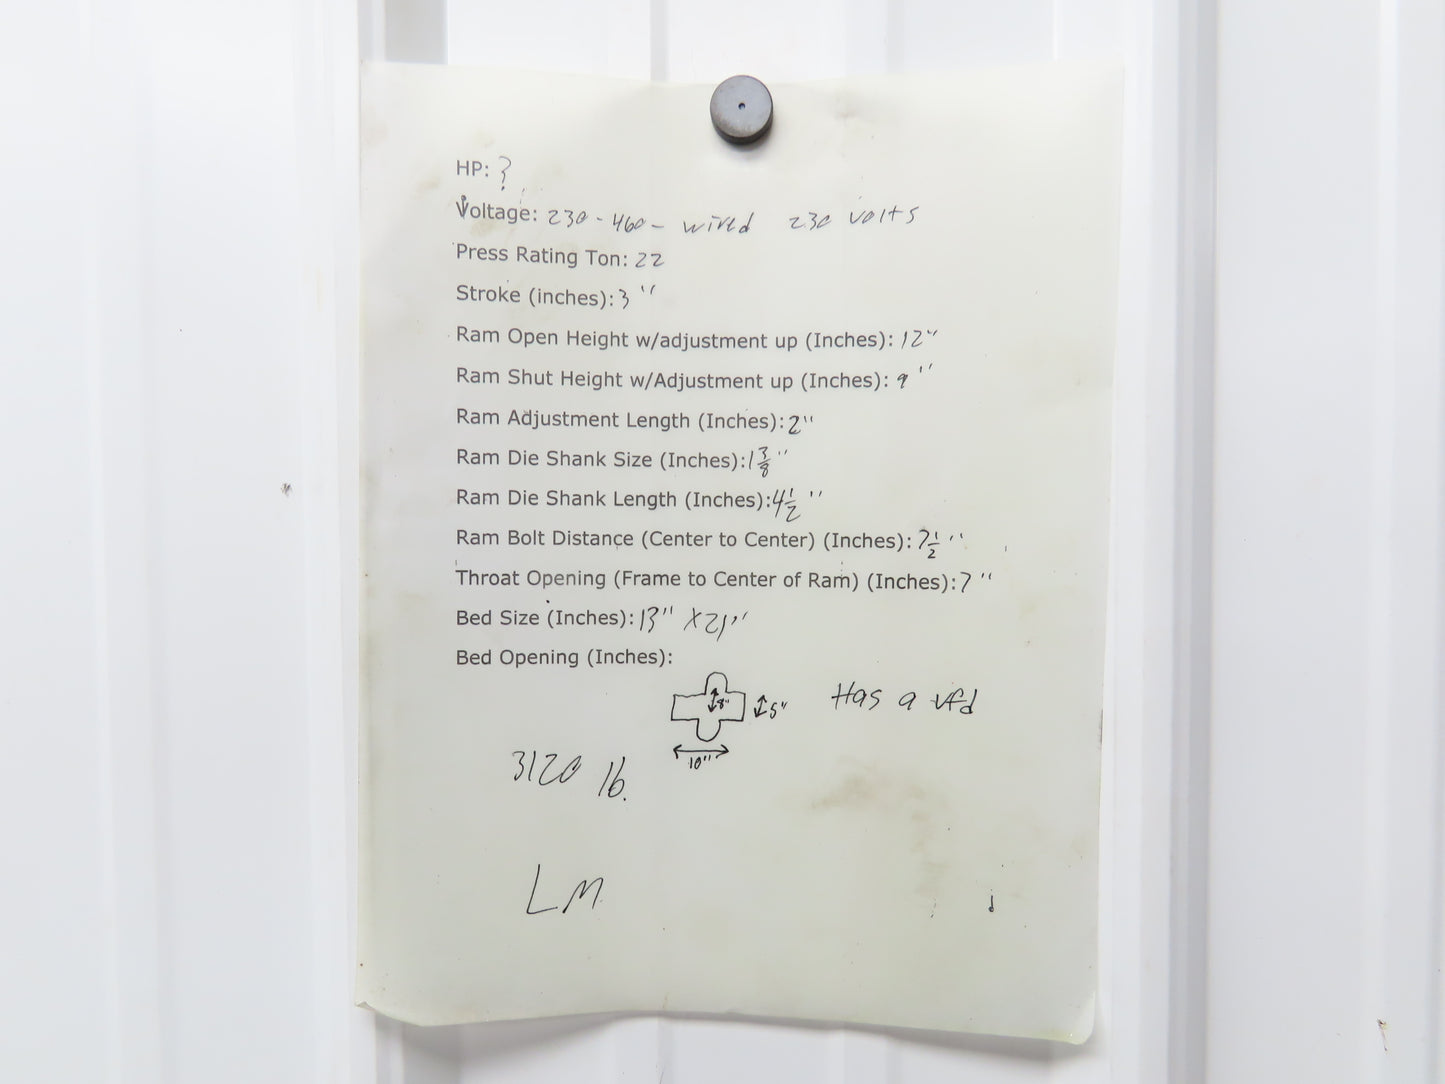 HP: ?
Voltage: 230 - 460 - wired 230 volts
Press Rating Ton: 22
Stroke (inches): 3"
Ram Open Height w/adjustment up (Inches): 12"
Ram Shut Height w/Adjustment up (Inches): 9"
Ram Adjustment Length (Inches): 2"
Ram Die Shank Size (Inches): 1 3/8"
Ram Die Shank Length (Inches): 4 1/2"
Ram Bolt Distance (Center to Center) (Inches): 7 1/2"
Throat Opening (Frame to Center of Ram) (Inches): 7"
Bed Size (Inches): 13" X 21"
Bed Opening (Inches):
8" 5" Has a vfd
10"
3120 lb.
LM